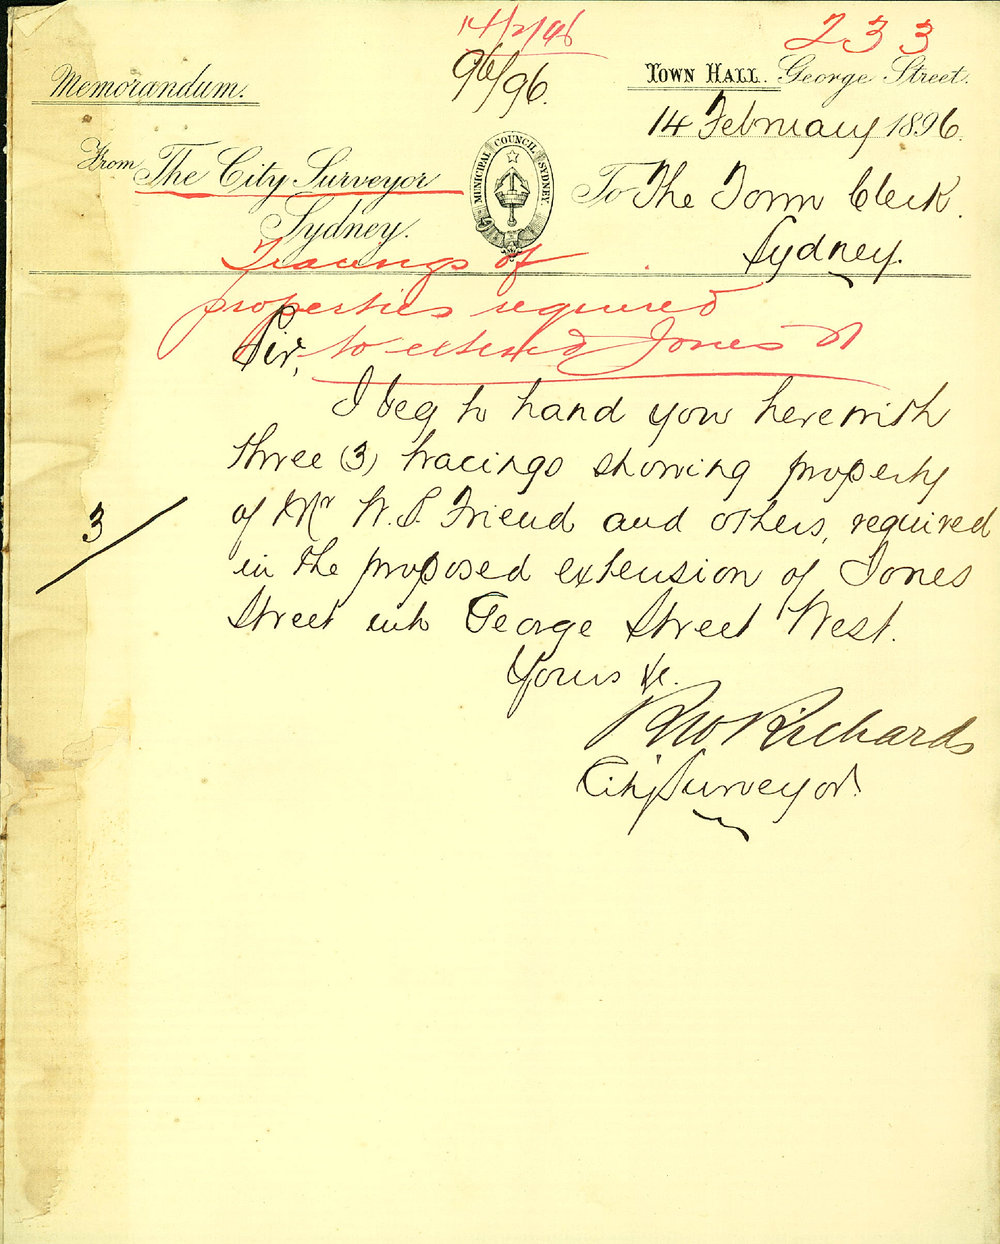 14/2/96
233
96/96.
Memorandum.
Town Hall. George Street.
14 February 1896.
From The City Surveyor
Sydney.
MUNICIPAL COUNCIL SYDNEY
To The Town Clerk.
Sydney.
Tracings of
properties required
to extend Jones St
Sir,
I beg to hand you herewith
three (3) tracings showing property
of Mr W. S. Friend and others, required
in the proposed extension of Jones
Street into George Street West.
3
Yours &c.
R W Richards
City Surveyor.